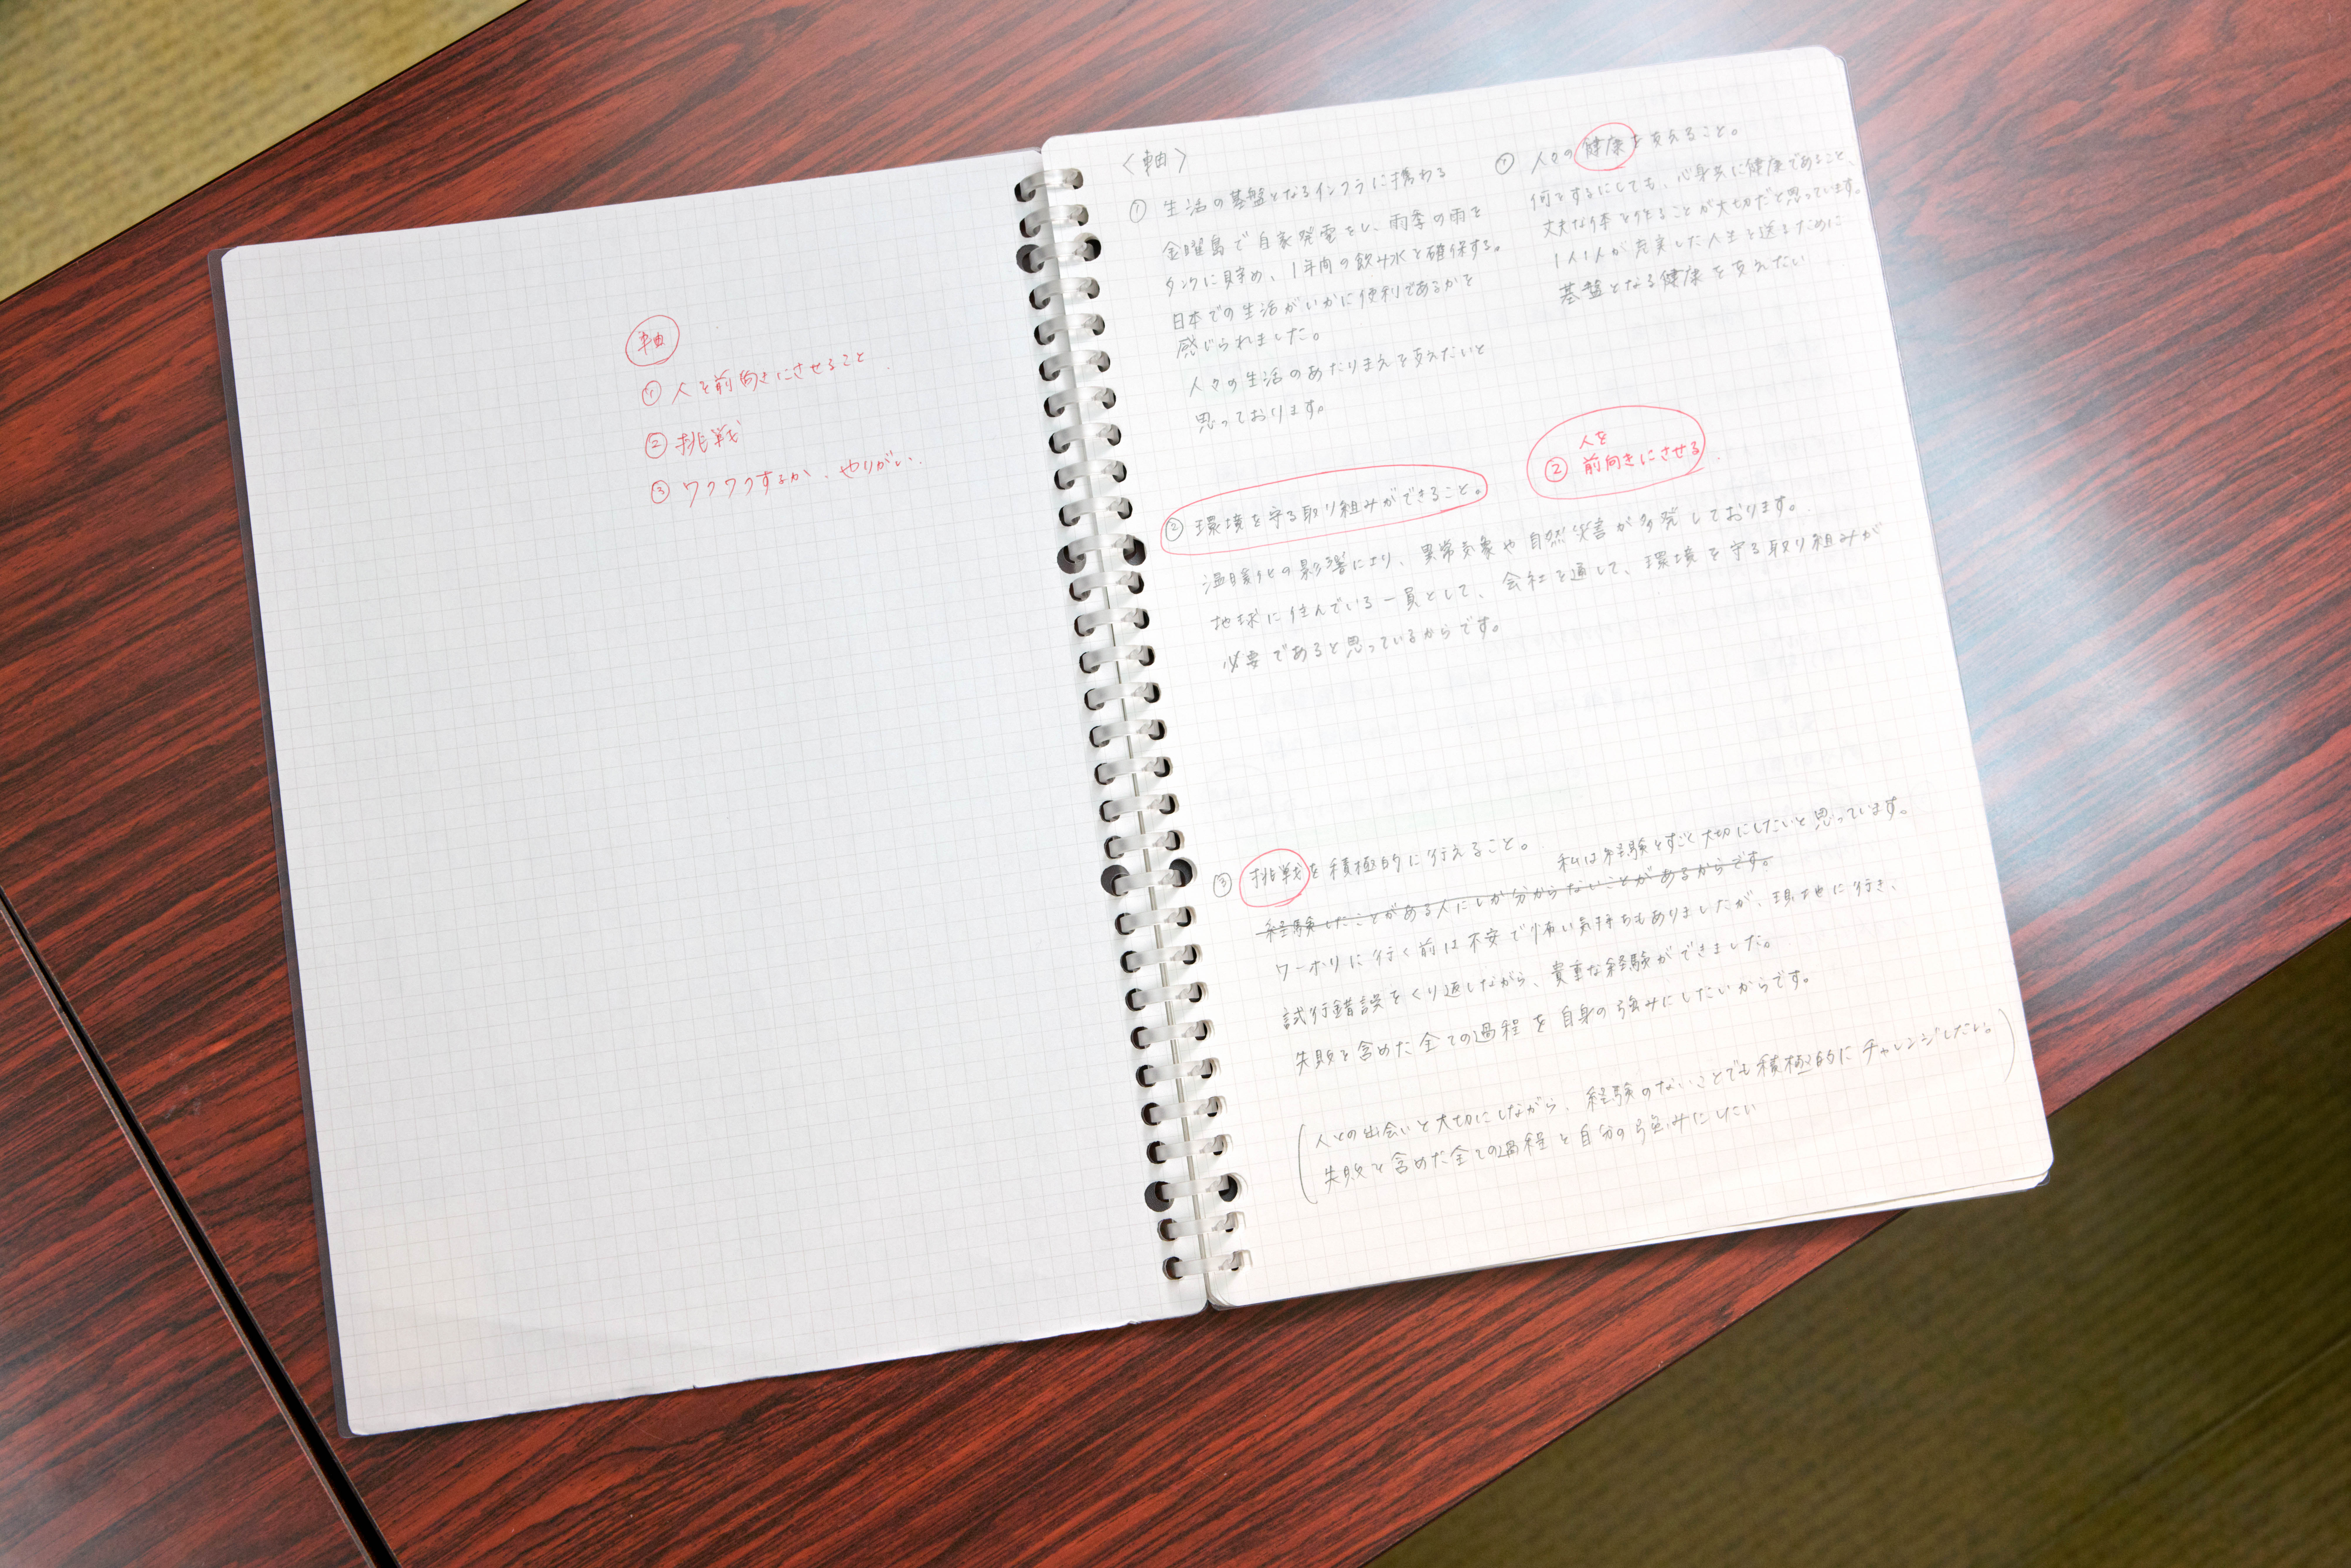 軸
① 人を前向きにさせること.
② 挑戦
③ ワクワクするか、やりがい.
〈軸〉
① 生活の基盤となるインフラに携わる
金曜島で自家発電をし、雨季の雨を
タンクに貯め、1年間の飲み水を確保する。
日本での生活がいかに便利であるかを
感じられました。
人々の生活のあたりまえを支えたいと
思っております。
① 人々の健康を支えること。
何をするにしても、心身共に健康であること、
丈夫な体を作ることが大切だと思っています。
1人1人が充実した人生を送るために
基盤となる健康を支えたい
人を
② 前向きにさせる.
② 環境を守る取り組みができること。
温暖化の影響により、異常気象や自然災害が多発しております。
地球に住んでいる一員として、会社を通して、環境を守る取り組みが
必要であると思っているからです。
③ 挑戦を積極的に行えること。
私は経験をすごく大切にしたいと思っています。
経験したことがある人にしか分からないことがあるからです。
ワーホリに行く前は不安で怖い気持ちもありましたが、現地に行き、
試行錯誤をくり返しながら、貴重な経験ができました。
失敗を含めた全ての過程を自身の強みにしたいからです。
(人との出会いを大切にしながら、経験のないことでも積極的にチャレンジしたい。
失敗を含めた全ての過程を自分の強みにしたい)